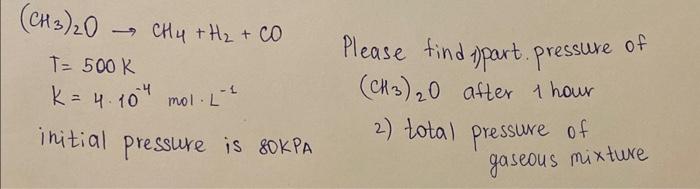 (CH3)2O → CH4 + H2 + CO
T = 500 K
K = 4·10⁻⁴ mol·L⁻¹
initial pressure is 80KPA
Please find 1) part. pressure of
(CH3)2O after 1 hour
2) total pressure of
gaseous mixture